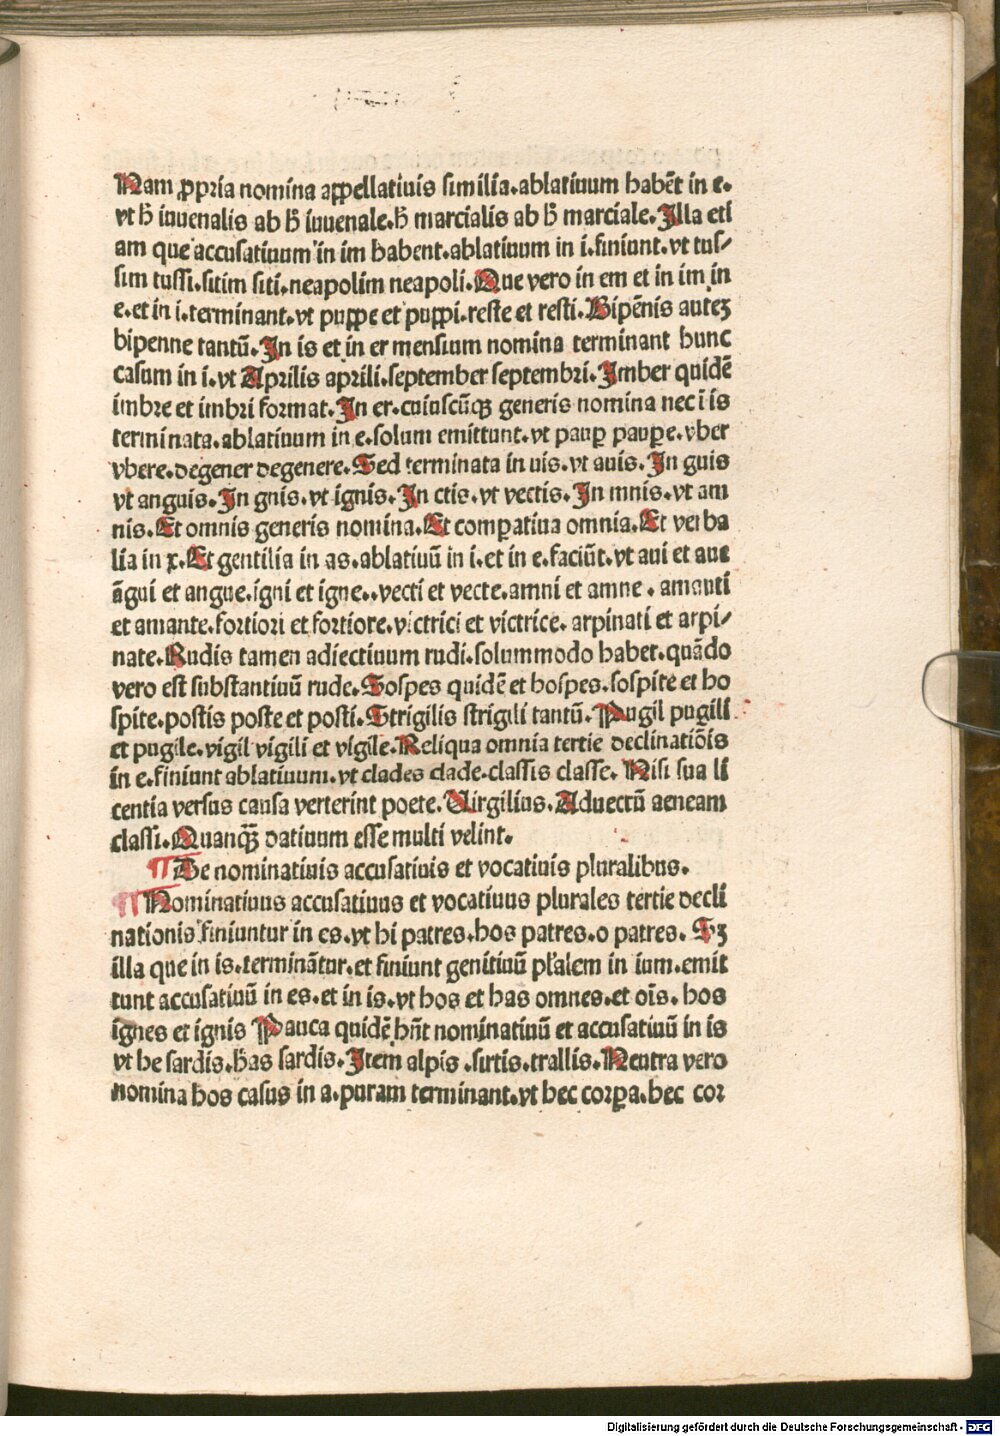 Nam ꝓpria nomina appellatiuis similia.ablatiuum habēt in e.
vt hͥ iuuenalis ab hͥ iuuenale.hͥ marcialis ab hͥ marciale.Illa eti
am que accusatiuum in im habent.ablatiuum in i.finiunt.vt tus/
sim tussi.sitim siti.neapolim neapoli.Que vero in em et in im in
e.et in i.terminant.vt puppe et puppi.reste et resti.Bipēnis auteꝫ
bipenne tantū.In is et in er mensium nomina terminant hunc
casum in i.vt Aprilis aprili.september septembri.Imber quidē
imbre et imbri format.In er.cuiuscūqꝫ generis nomina nec ī is
terminata.ablatiuum in e.solum emittunt.vt pauꝑ pauꝑe.vber
vbere.degener degenere.Sed terminata in uis.vt auis.In guis
vt anguis.In gnis.vt ignis.In ctis.vt vectis.In mnis.vt am
nis.Et omnis generis nomina.Et comꝑatiua omnia.Et verba
lia in x.Et gentilia in as.ablatiuū in i.et in e.faciūt.vt aui et aue
āgui et angue.igni et igne..vecti et vecte.amni et amne . amanti
et amante.fortiori et fortiore.victrici et victrice. arpinati et arpi/
nate.Rudis tamen adiectiuum rudi.solummodo habet.quādo
vero est substantiuū rude.Sospes quidē et hospes.sospite et ho
spite.postis poste et posti.Strigilis strigili tantū.Pugil pugili
et pugile.vigil vigili et vigile.Reliqua omnia tertie declinatiōis
in e.finiunt ablatiuum.vt clades clade.classis classe. Nisi sua li
centia versus causa verterint poete.Virgilius.Aduectū aeneam
classi.Quanqꝫ̄ datiuum esse multi velint.
¶ De nominatiuis accusatiuis et vocatiuis pluralibus.
¶ Nominatiuus accusatiuus et vocatiuus plurales tertie decli
nationis finiuntur in es.vt hi patres.hos patres.o patres. Sꝫ
illa que in is.terminātur.et finiunt genitiuū pľalem in ium.emit
tunt accusatiuū in es.et in is.vt hos et has omnes.et oīs. hos
ignes et ignis Pauca quidē hn̄t nominatiuū et accusatiuū in is
vt he sardis.has sardis.Item alpis .sirtis.trallis.Neutra vero
nomina hos casus in a.puram terminant.vt hec corꝑa.hec cor
Digitalisierung gefördert durch die Deutsche Forschungsgemeinschaft - DFG